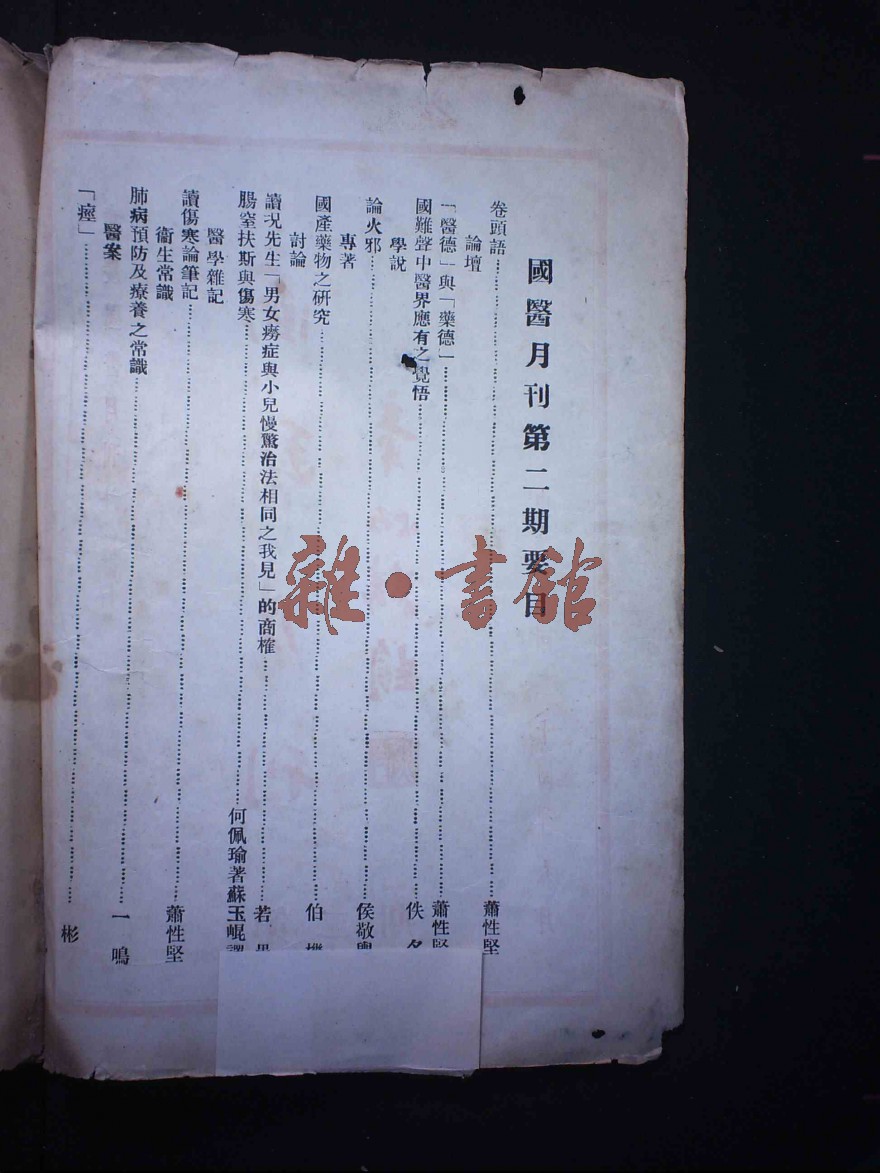 國醫月刊第二期要目
卷頭語……蕭性堅
論壇
「醫德」與「藥德」……蕭性堅
國難聲中醫界應有之覺悟……佚名
學說
論火邪……侯敬輿
專著
國產藥物之研究……伯
討論
讀況先生「男女癆症與小兒慢驚治法相同之我見」的商榷……若
腸窒扶斯與傷寒……何佩瑜著蘇玉崐譯
醫學雜記
讀傷寒論筆記……蕭性堅
衞生常識
肺病預防及療養之常識……一鳴
醫案
「痙」……彬
雜·書館